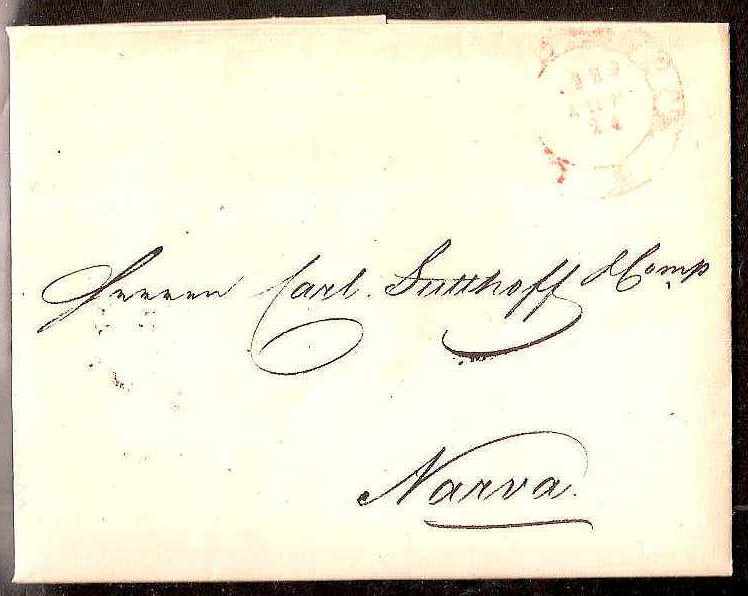 Herren Carl. Sutthoff & Comp
Narva.